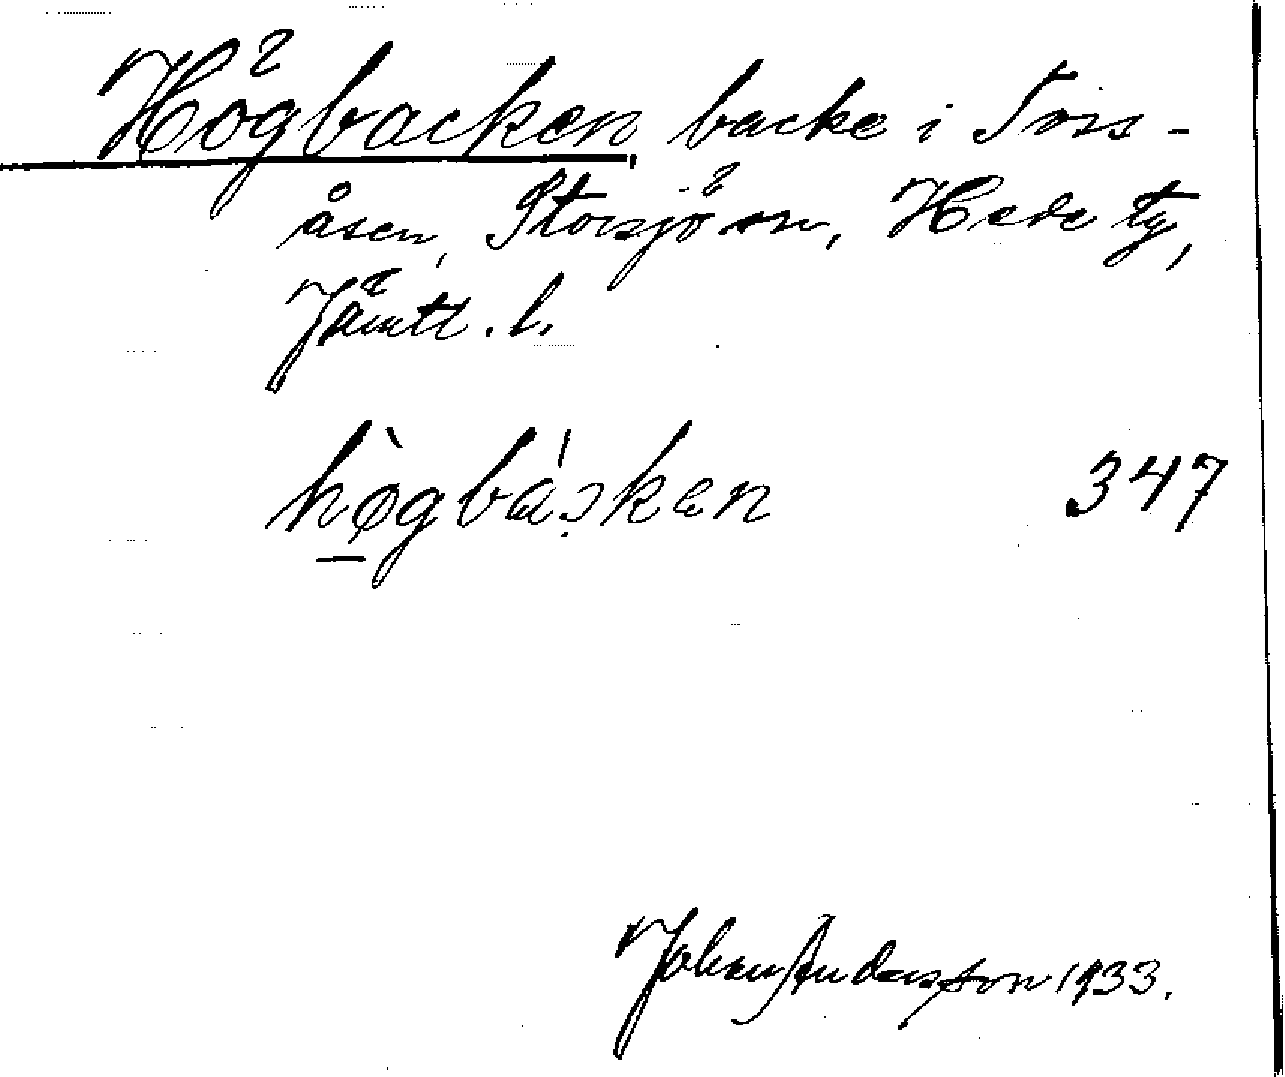 Högbacken, backe i Tors-
åsen, Storsjö sn, Hede tg,
Jämtt. l.
hògbáskæn 347
Johan Andersson 1933.